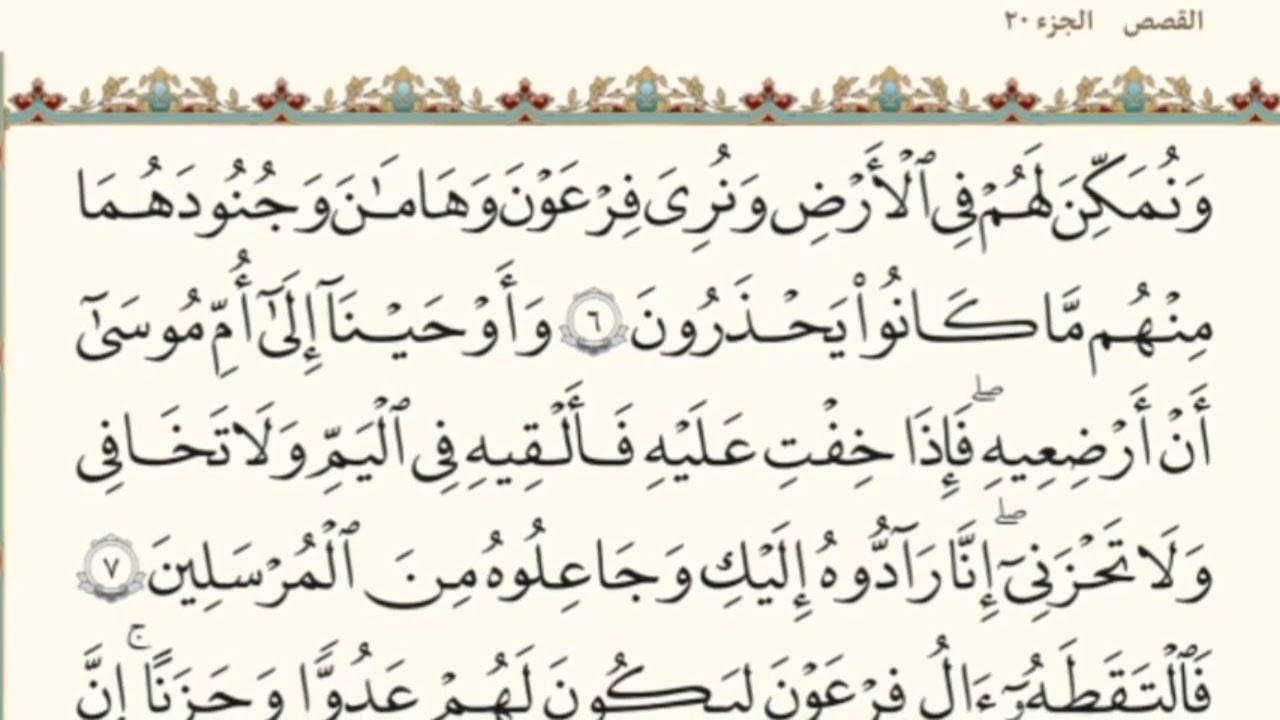 القصص الجزء ٢٠
وَنُمَكِّنَ لَهُمْ فِى ٱلْأَرْضِ وَنُرِىَ فِرْعَوْنَ وَهَامَـٰنَ وَجُنُودَهُمَا
مِنْهُم مَّا كَانُوا۟ يَحْذَرُونَ ٦ وَأَوْحَيْنَآ إِلَىٰٓ أُمِّ مُوسَىٰٓ
أَنْ أَرْضِعِيهِ ۖ فَإِذَا خِفْتِ عَلَيْهِ فَأَلْقِيهِ فِى ٱلْيَمِّ وَلَا تَخَافِى
وَلَا تَحْزَنِىٓ ۖ إِنَّا رَآدُّوهُ إِلَيْكِ وَجَاعِلُوهُ مِنَ ٱلْمُرْسَلِينَ ٧
فَٱلْتَقَطَهُۥٓ ءَالُ فِرْعَوْنَ لِيَكُونَ لَهُمْ عَدُوًّا وَحَزَنًا ۗ إِنَّ